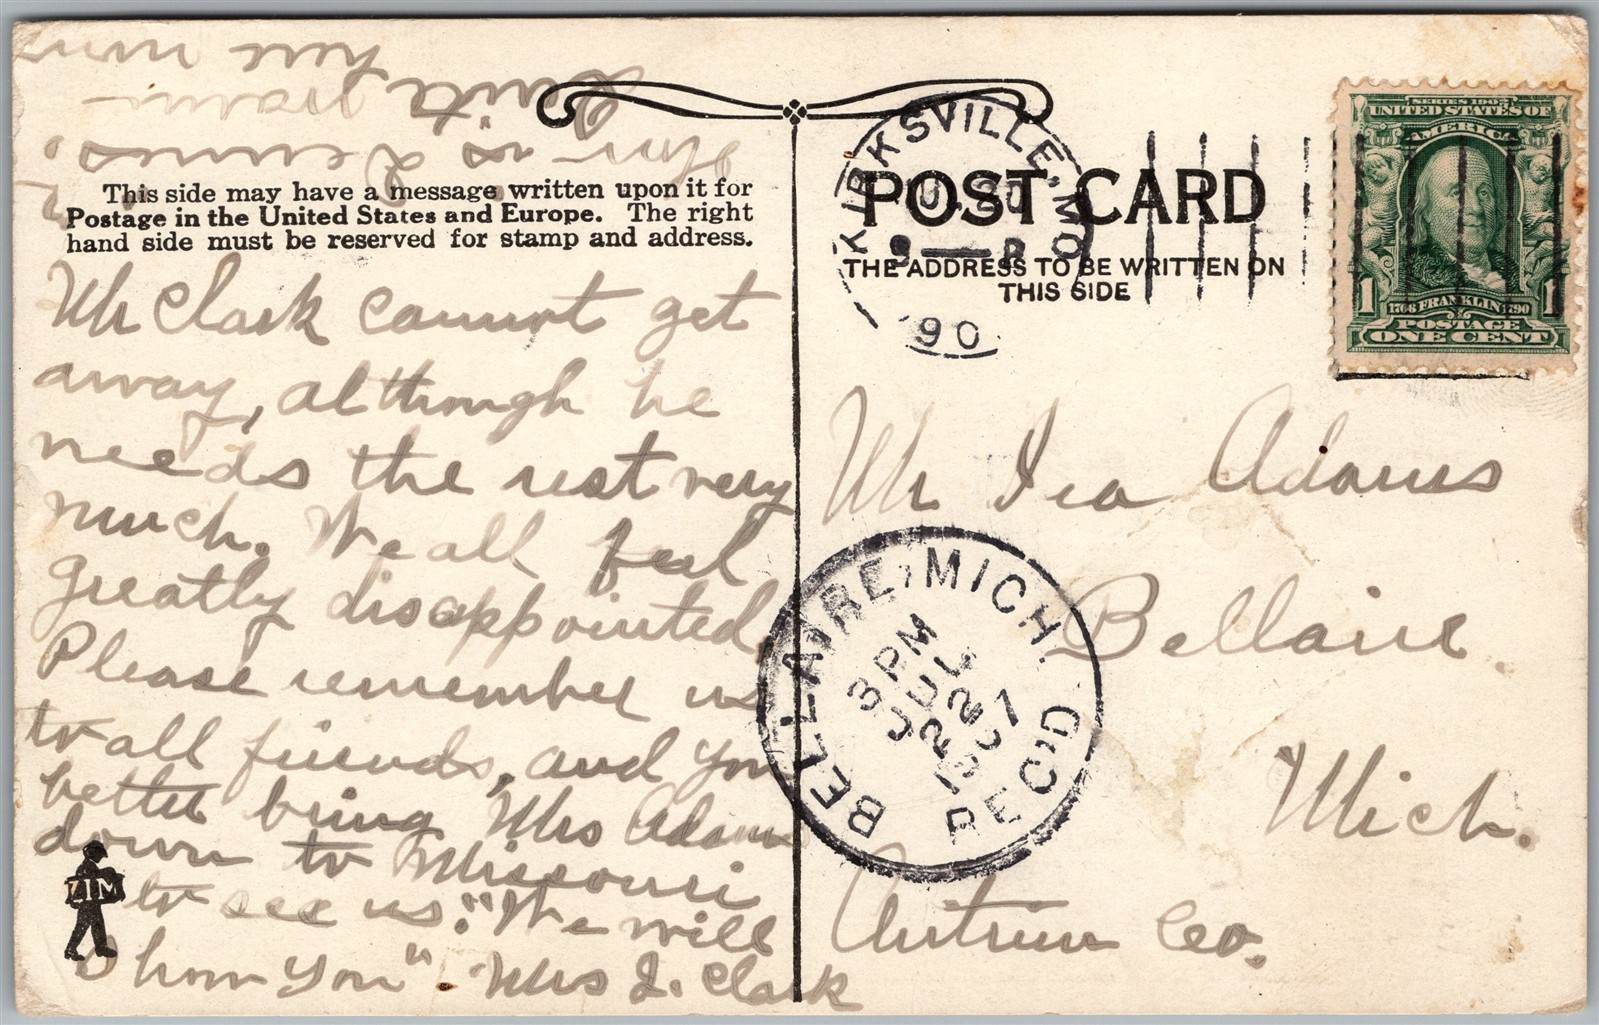 This side may have a message written upon it for
Postage in the United States and Europe. The right
hand side must be reserved for stamp and address.
Mr Clark cannot get
away, although he
needs the rest very
much. We all feel
greatly disappointed
Please remember us
to all friends, and you
better bring Mrs Adams
down to Missouri
to see us. "We will
Show you". Mrs J. Clark
is
Quite warm
here now
ZIM
POST CARD
THE ADDRESS TO BE WRITTEN ON
THIS SIDE
KIRKSVILLE, MO
90
SERIES 1902
UNITED STATES OF
AMERICA
1 1
1706 FRANKLIN 1790
POSTAGE
ONE CENT
Mr Ira Adams
Bellaire.
Mich.
Antrim Co.
BELLAIRE, MICH.
3 PM
JUL
22
1907
REC'D